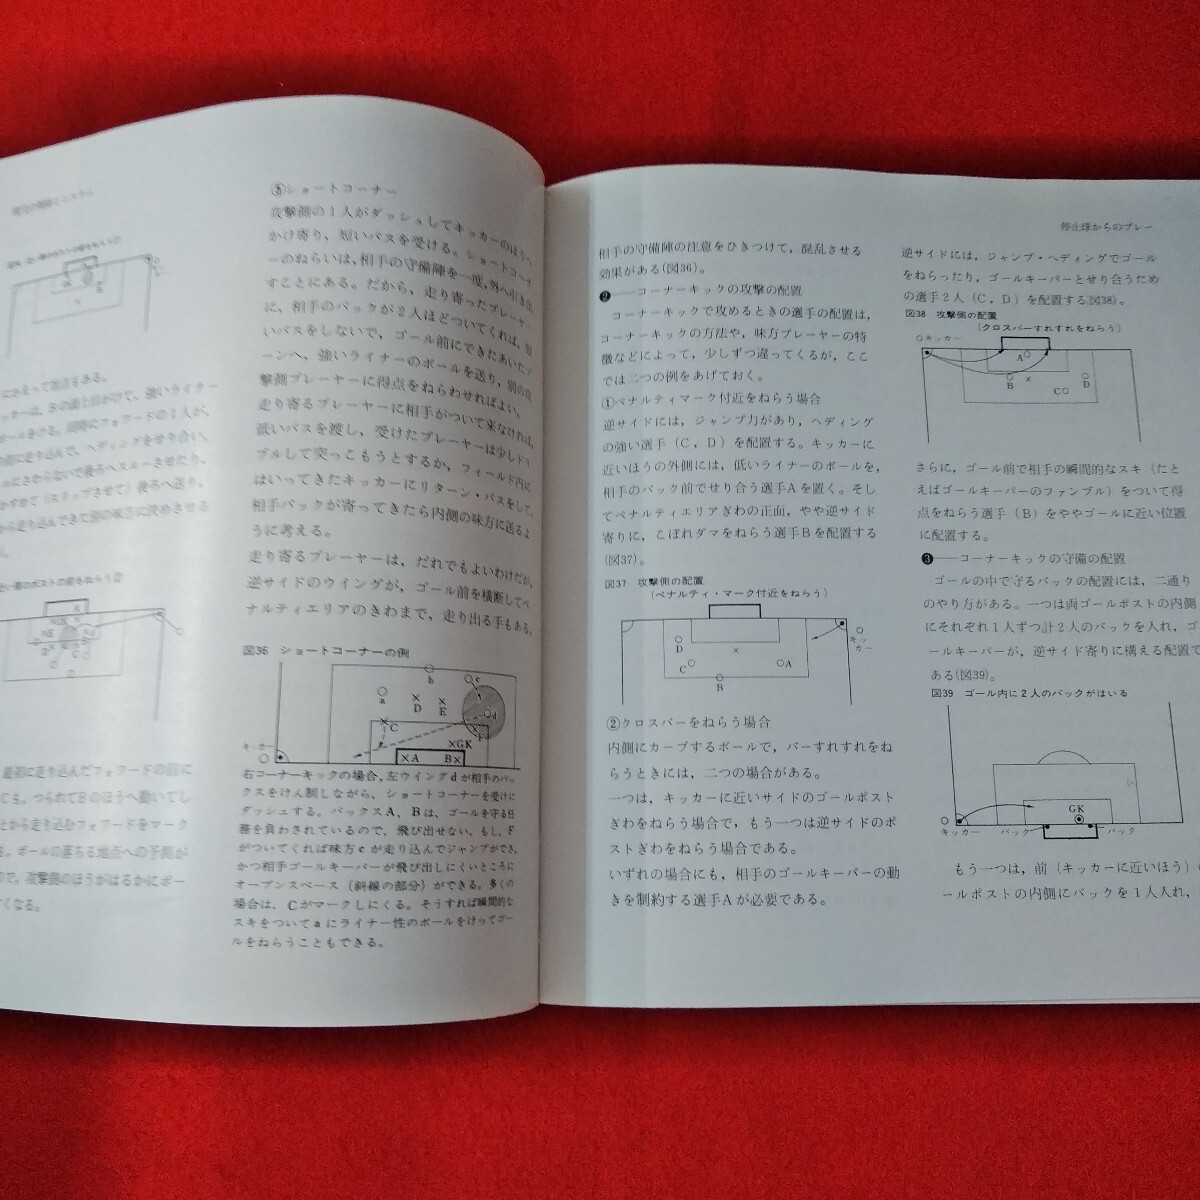 にかえって弱点もある。
ールにさわらないで後ろへスルーさせたり、
かすめて（スリップさせて）後ろへ送り、
から走り込んできた別の味方に決めさせる
最初に走り込んだフォワードの前に
Cも、つられてBのほうへ動いてし
とから走り込むフォワードをマーク
る。ボールの落ちる地点への予測が
ので、攻撃側のほうがはるかにボー
くなる。
⑤ショートコーナー
攻撃側の1人がダッシュしてキッカーのほうへ
かけ寄り，短いパスを受ける。ショートコーナ
ーのねらいは，相手の守備陣を一度，外へ引き出
すことにある。だから，走り寄ったプレーヤー
に，相手のバックが2人ほどついてくれば，短
いパスをしないで，ゴール前にできたあいたゾ
ーンへ，強いライナーのボールを送り，別の攻
撃側プレーヤーに得点をねらわせればよい。
走り寄るプレーヤーに相手がついて来なければ，
低いパスを渡し，受けたプレーヤーは少しドリ
ブルして突っこもうとするか，フィールド内に
はいってきたキッカーにリターン・パスをして，
相手バックが寄ってきたら内側の味方に送るよ
うに考える。
走り寄るプレーヤーは，だれでもよいわけだが，
逆サイドのウイングが，ゴール前を横断してペ
ナルティエリアのきわまで，走り出る手もある。
図36 ショートコーナーの例
b
c
a
D
E
d
C
F
GK
A
B
キッカー
右コーナーキックの場合，左ウイングdが相手のバッ
クスをけん制しながら，ショートコーナーを受けに
ダッシュする。バックスA，Bは，ゴールを守る任
務を負わされているので，飛び出せない。もし，F
がついてくれば味方cが走り込んでジャンプができ，
かつ相手ゴールキーパーが飛び出しにくいところに
オープンスペース（斜線の部分）ができる。多くの
場合は，Cがマークしにくる。そうすれば瞬間的な
スキをついてaにライナー性のボールをけってゴー
ルをねらうこともできる。
停止球からのプレー
相手の守備陣の注意をひきつけて，混乱させる
効果がある(図36)。
❷──コーナーキックの攻撃の配置
コーナーキックで攻めるときの選手の配置は，
コーナーキックの方法や，味方プレーヤーの特
徴などによって，少しずつ違ってくるが，ここ
では二つの例をあげておく。
①ペナルティマーク付近をねらう場合
逆サイドには，ジャンプ力があり，ヘディング
の強い選手（C，D）を配置する。キッカーに
近いほうの外側には，低いライナーのボールを，
相手のバック前でせり合う選手Aを置く。そし
てペナルティエリアぎわの正面，やや逆サイド
寄りに，こぼれダマをねらう選手Bを配置する
(図37)。
図37 攻撃側の配置
（ペナルティ・マーク付近をねらう）
キッカー
D
C
B
A
②クロスバーをねらう場合
内側にカーブするボールで，バーすれすれをね
らうときには，二つの場合がある。
一つは，キッカーに近いサイドのゴールポスト
ぎわをねらう場合で，もう一つは逆サイドのポ
ストぎわをねらう場合である。
いずれの場合にも，相手のゴールキーパーの動
きを制約する選手Aが必要である。
逆サイドには，ジャンプ・ヘディングでゴール
をねらったり，ゴールキーパーとせり合うため
の選手2人（C，D）を配置する(図38)。
図38 攻撃側の配置
（クロスバーすれすれをねらう）
キッカー
A
B
C
D
さらに，ゴール前で相手の瞬間的なスキ（たと
えばゴールキーパーのファンブル）をついて得
点をねらう選手（B）をややゴールに近い位置
に配置する。
❸──コーナーキックの守備の配置
ゴールの中で守るバックの配置には，二通り
のやり方がある。一つは両ゴールポストの内側
にそれぞれ1人ずつ計2人のバックを入れ，ゴ
ールキーパーが，逆サイド寄りに構える配置で
ある(図39)。
図39 ゴール内に2人のバックがはいる
GK
キッカー
バック
バック
もう一つは，前（キッカーに近いほう）の
ールポストの内側にバックを1人入れ，